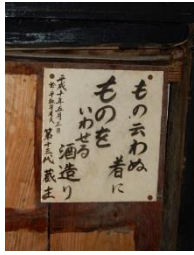 もの云わぬ
ものを 者に
いわせる
酒造り
平成十年五月三日
第十三代 蔵主